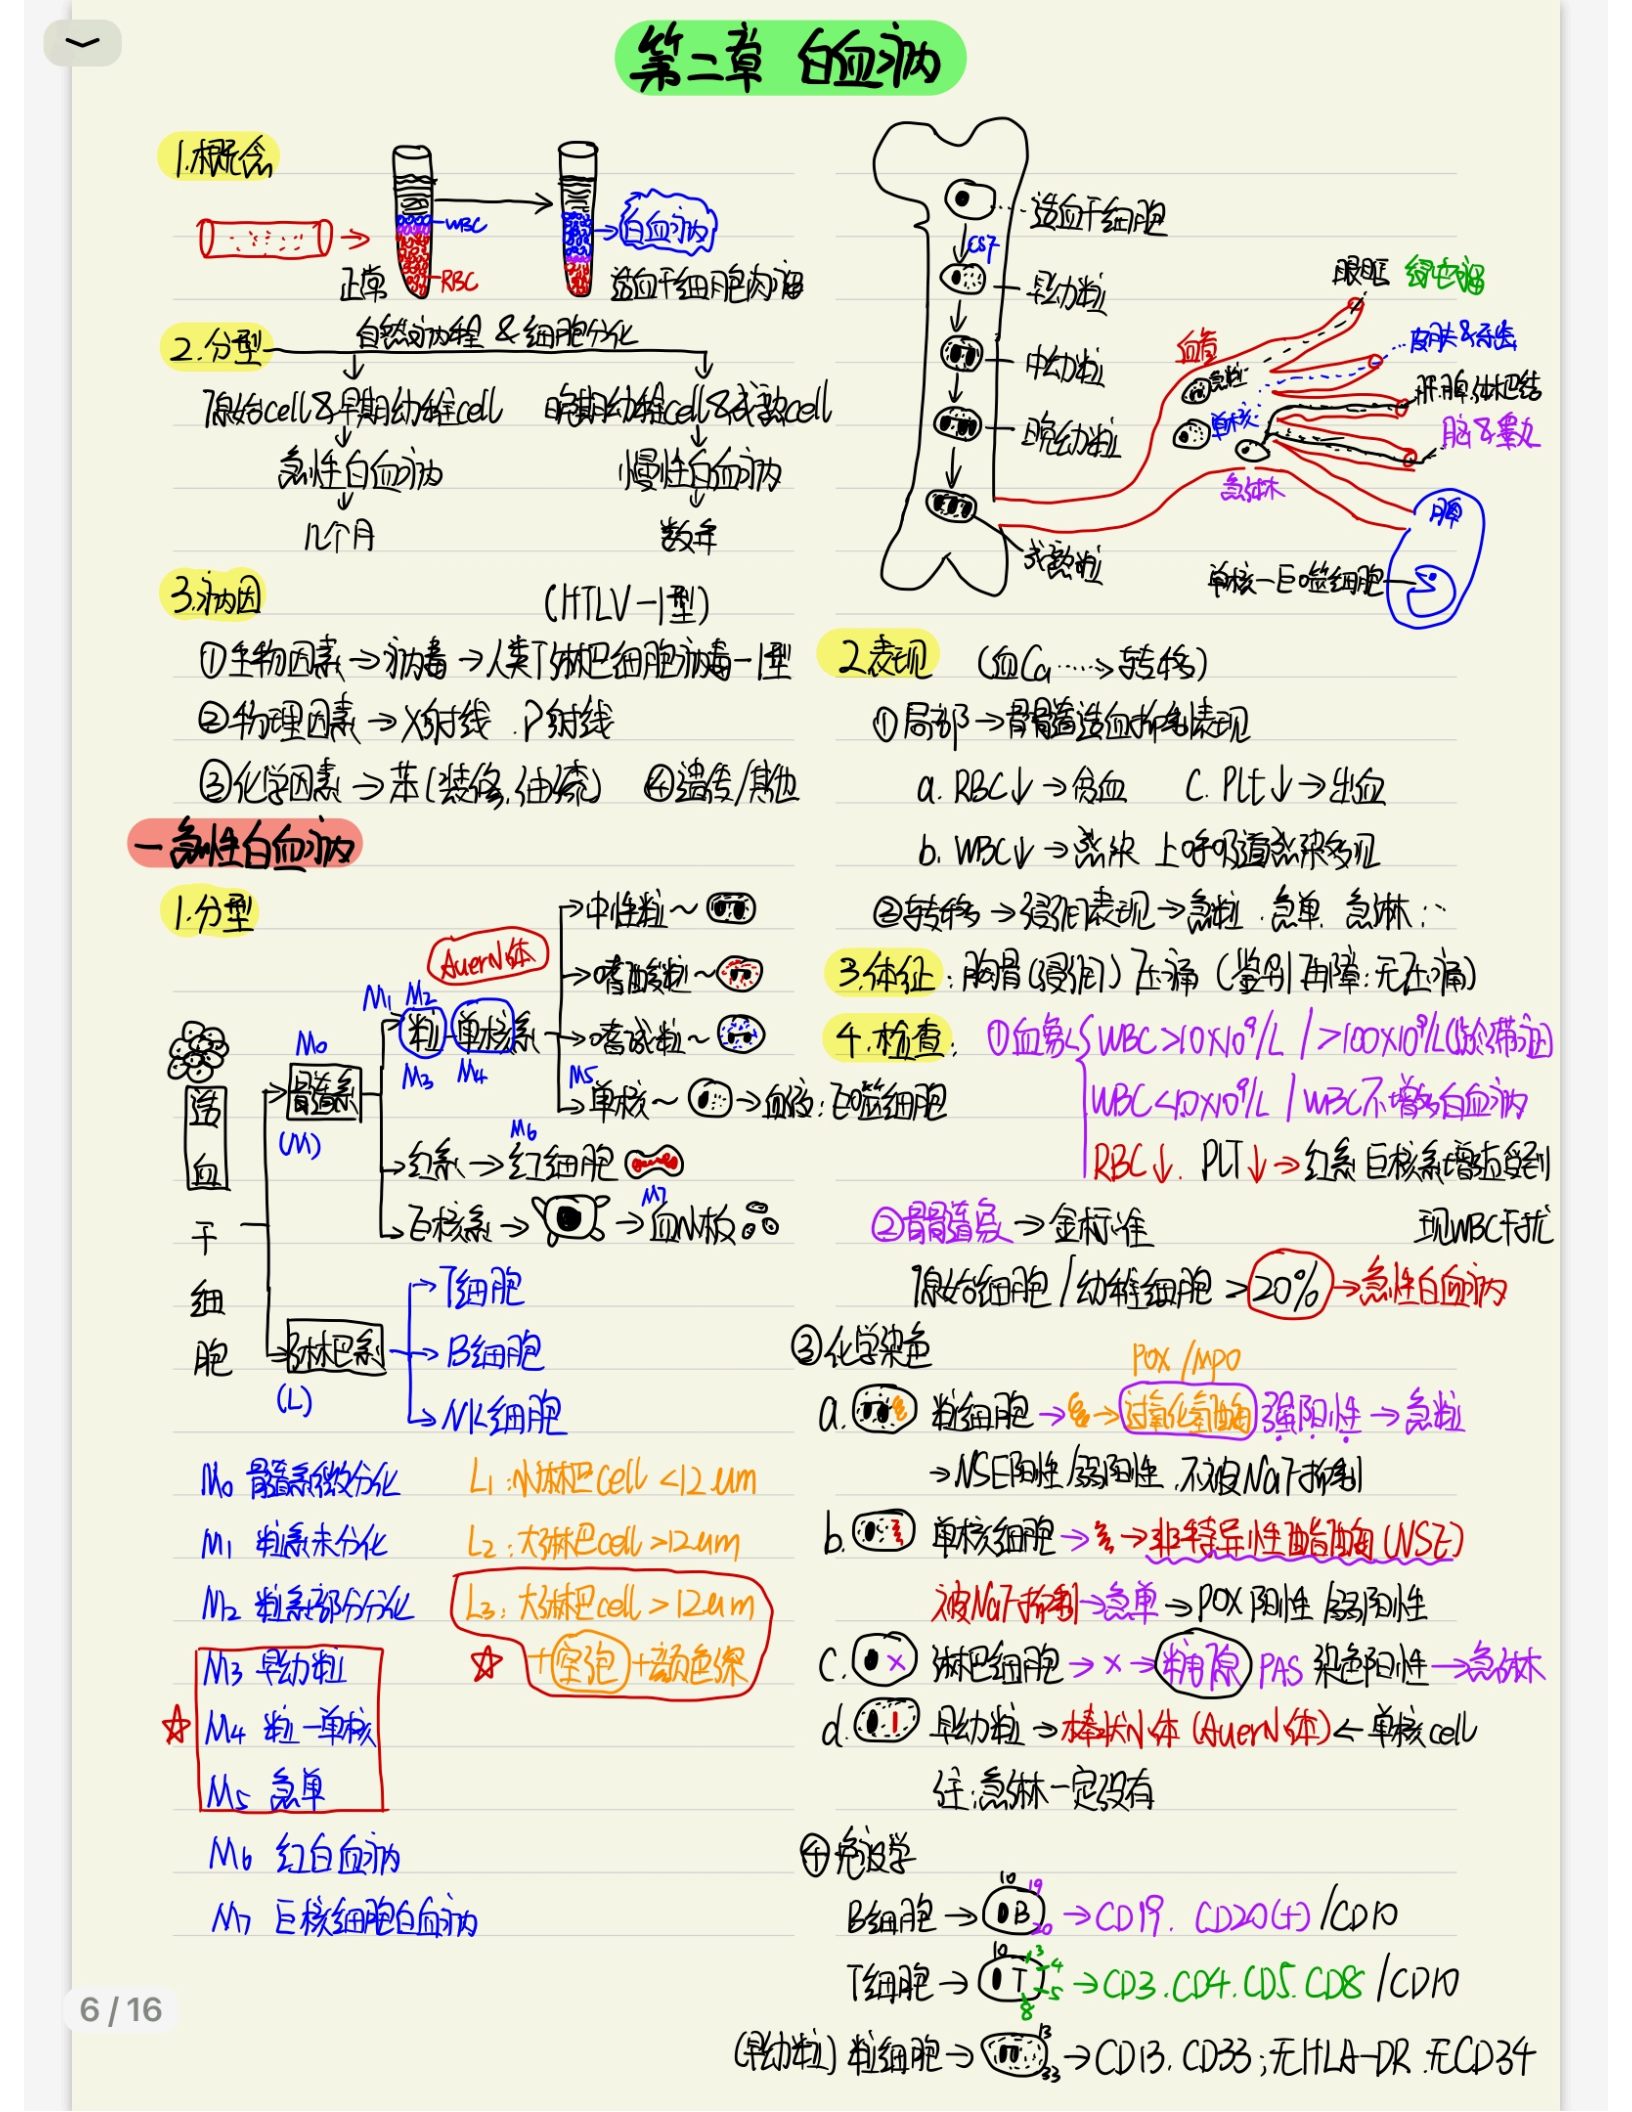 第二章 白血病
1.概念
WBC
白血病
正常
RBC
造血干细胞肿瘤
2.分型
自然病程 & 细胞分化
原始cell&早期幼稚cell
晚期幼稚cell&成熟cell
急性白血病
慢性白血病
几个月
数年
3.病因
(HTLV-1型)
①生物因素→病毒→人类T淋巴细胞病毒-1型
②物理因素→X射线.γ射线
③化学因素→苯(装修.油漆) ④遗传/其他
一急性白血病
1.分型
造血干细胞
M0
骨髓系
(M)
M1 M2
Auer小体
粒-单核系
M3 M4
中性粒~
嗜酸粒~
嗜碱粒~
M5
单核~→血液:巨噬细胞
红系→红细胞
M6
巨核系→→血小板
M7
淋巴系
(L)
T细胞
B细胞
NK细胞
M0 髓系微分化
M1 粒系未分化
M2 粒系部分分化
M3 早幼粒
M4 粒-单核
M5 急单
M6 红白血病
M7 巨核细胞白血病
L1:小淋巴cell <12um
L2:大淋巴cell >12um
L3:大淋巴cell >12um
+空泡+颜色深
造血干细胞
CSF
早幼粒
中幼粒
晚幼粒
成熟粒
眼眶 绿色瘤
血管
皮肤&牙龈
急粒
肝.脾.淋巴结
单核
脑&睾丸
急淋
脾
单核-巨噬细胞
2.表现 (血Ca……→转移)
①局部→骨髓造血抑制表现
a. RBC↓→贫血 C. PLt↓→出血
b. WBC↓→感染 上呼吸道感染多见
②转移→浸润表现→急粒.急单.急淋:…
3.体征:胸骨(浸润)压痛(鉴别再障:无压痛)
4.检查: ①血象 WBC>10×10⁹/L / >100×10⁹/L(淤滞症)
WBC<10×10⁹/L / WBC不增多白血病
RBC↓. PLT↓→红系 巨核系增殖受到
现WBC干扰
②骨髓象→金标准
原始细胞/幼稚细胞 >20%→急性白血病
③化学染色
POX/MPO
a. 粒细胞→→过氧化氢酶 强阳性→急粒
→NSE阳性/弱阳性.不被NaF抑制
b. 单核细胞→→非特异性酯酶(NSE)
被NaF抑制→急单→POX阳性/弱阳性
C. 淋巴细胞→×→糖原 PAS 染色阳性→急淋
d. 早幼粒→棒状小体(Auer小体)←单核cell
注:急淋一定没有
④免疫学
B细胞→ B 10 19 20 →CD19. CD20(+)/CD10
T细胞→ T 10 3 4 5 8 →CD3.CD4.CD5.CD8/CD10
(早幼粒)粒细胞→ 13 33 →CD13.CD33;无HLA-DR.无CD34
6/16